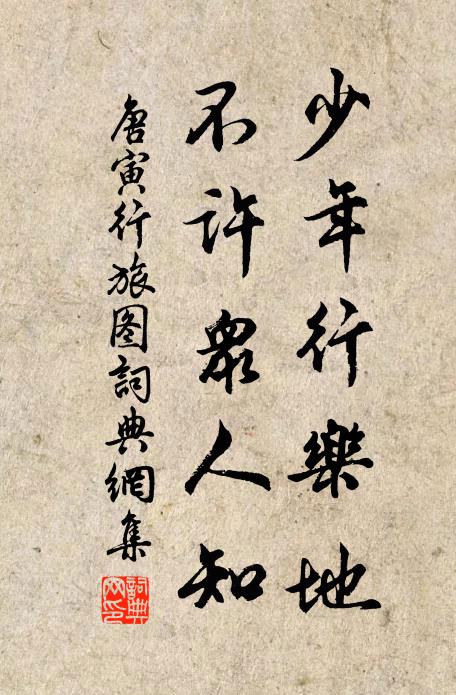 少年行樂地
不許眾人知
唐寅行旅图詞典網集
詞典网印